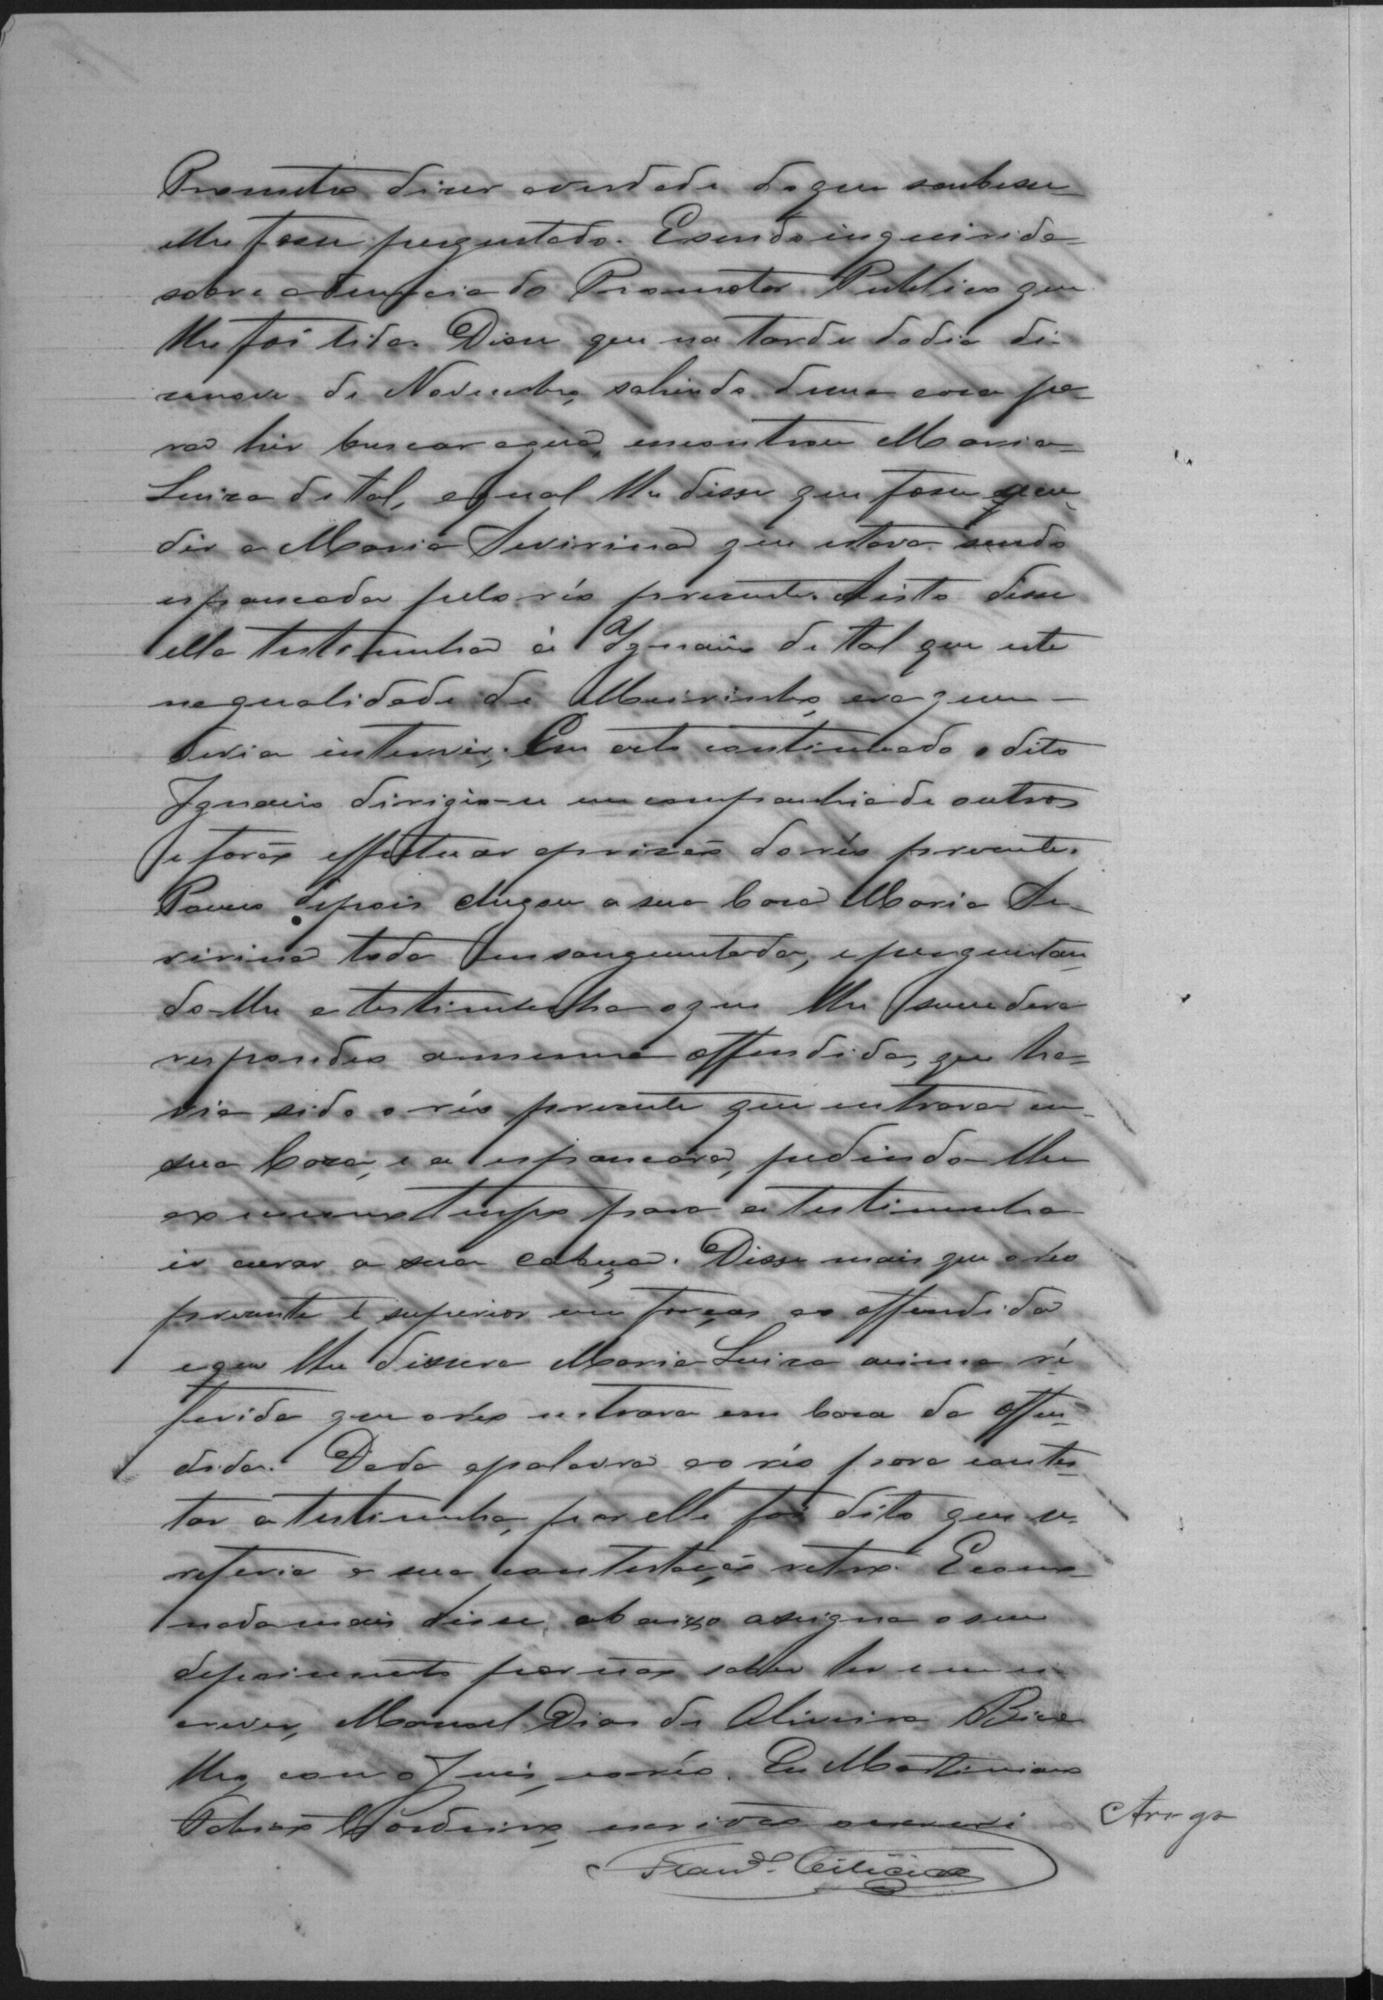 Prometeo diser averdade doque soubesse
elhe fosse preguntado. Esendo inquirida
sobre adenuncia do Promotor Publico que
lhe foi lida. Disse que na tarde dodia de-
senove de Novembro, sahindo desua casa pa-
ra hir buscar agua, encontrou Maria
Luiza de tal, aqual lhe disse que fosse acu-
dir a Maria Severina que estava sendo
espancada pelo réo presente. Aisto disse
ella testimunha á Ignacio de tal que este
naqualidade de Meirinho, era quem
devia intervir. Em acto continuado o dito
Ignacio dirigio-se em companhia de outros
e forão effetuar aprizão do réo presente.
Pouco depois chegou a sua Casa Maria Se-
virina toda ensanguentada, e preguntan-
do-lhe a testimunha oque lhe sucedera
respondeo amesma offendida, que ha-
via sido o réo presente que entrara em
sua Casa, e a espancara, pedindo-lhe
aomesmo tempo para a testimunha
ir curar a sua cabeça. Disse mais que o réo
presente é superior em forças ao offendida
eque lhe dissera Maria Luiza acima re-
ferida que o réo entrara em casa da offen-
dida. Dada apalavra ao réo para contes-
tar a testimunha, por elle foi dito que se
referia a sua contestação retro. E como
nada mais disse, abaixo assigna o seu
depoimento por não saber ler nem es-
crever, Manoel Dias de Oliveira
com o Juis, eo réo. Eu Martiniano
Cordeiro, escrivão o escrevi
Arogo